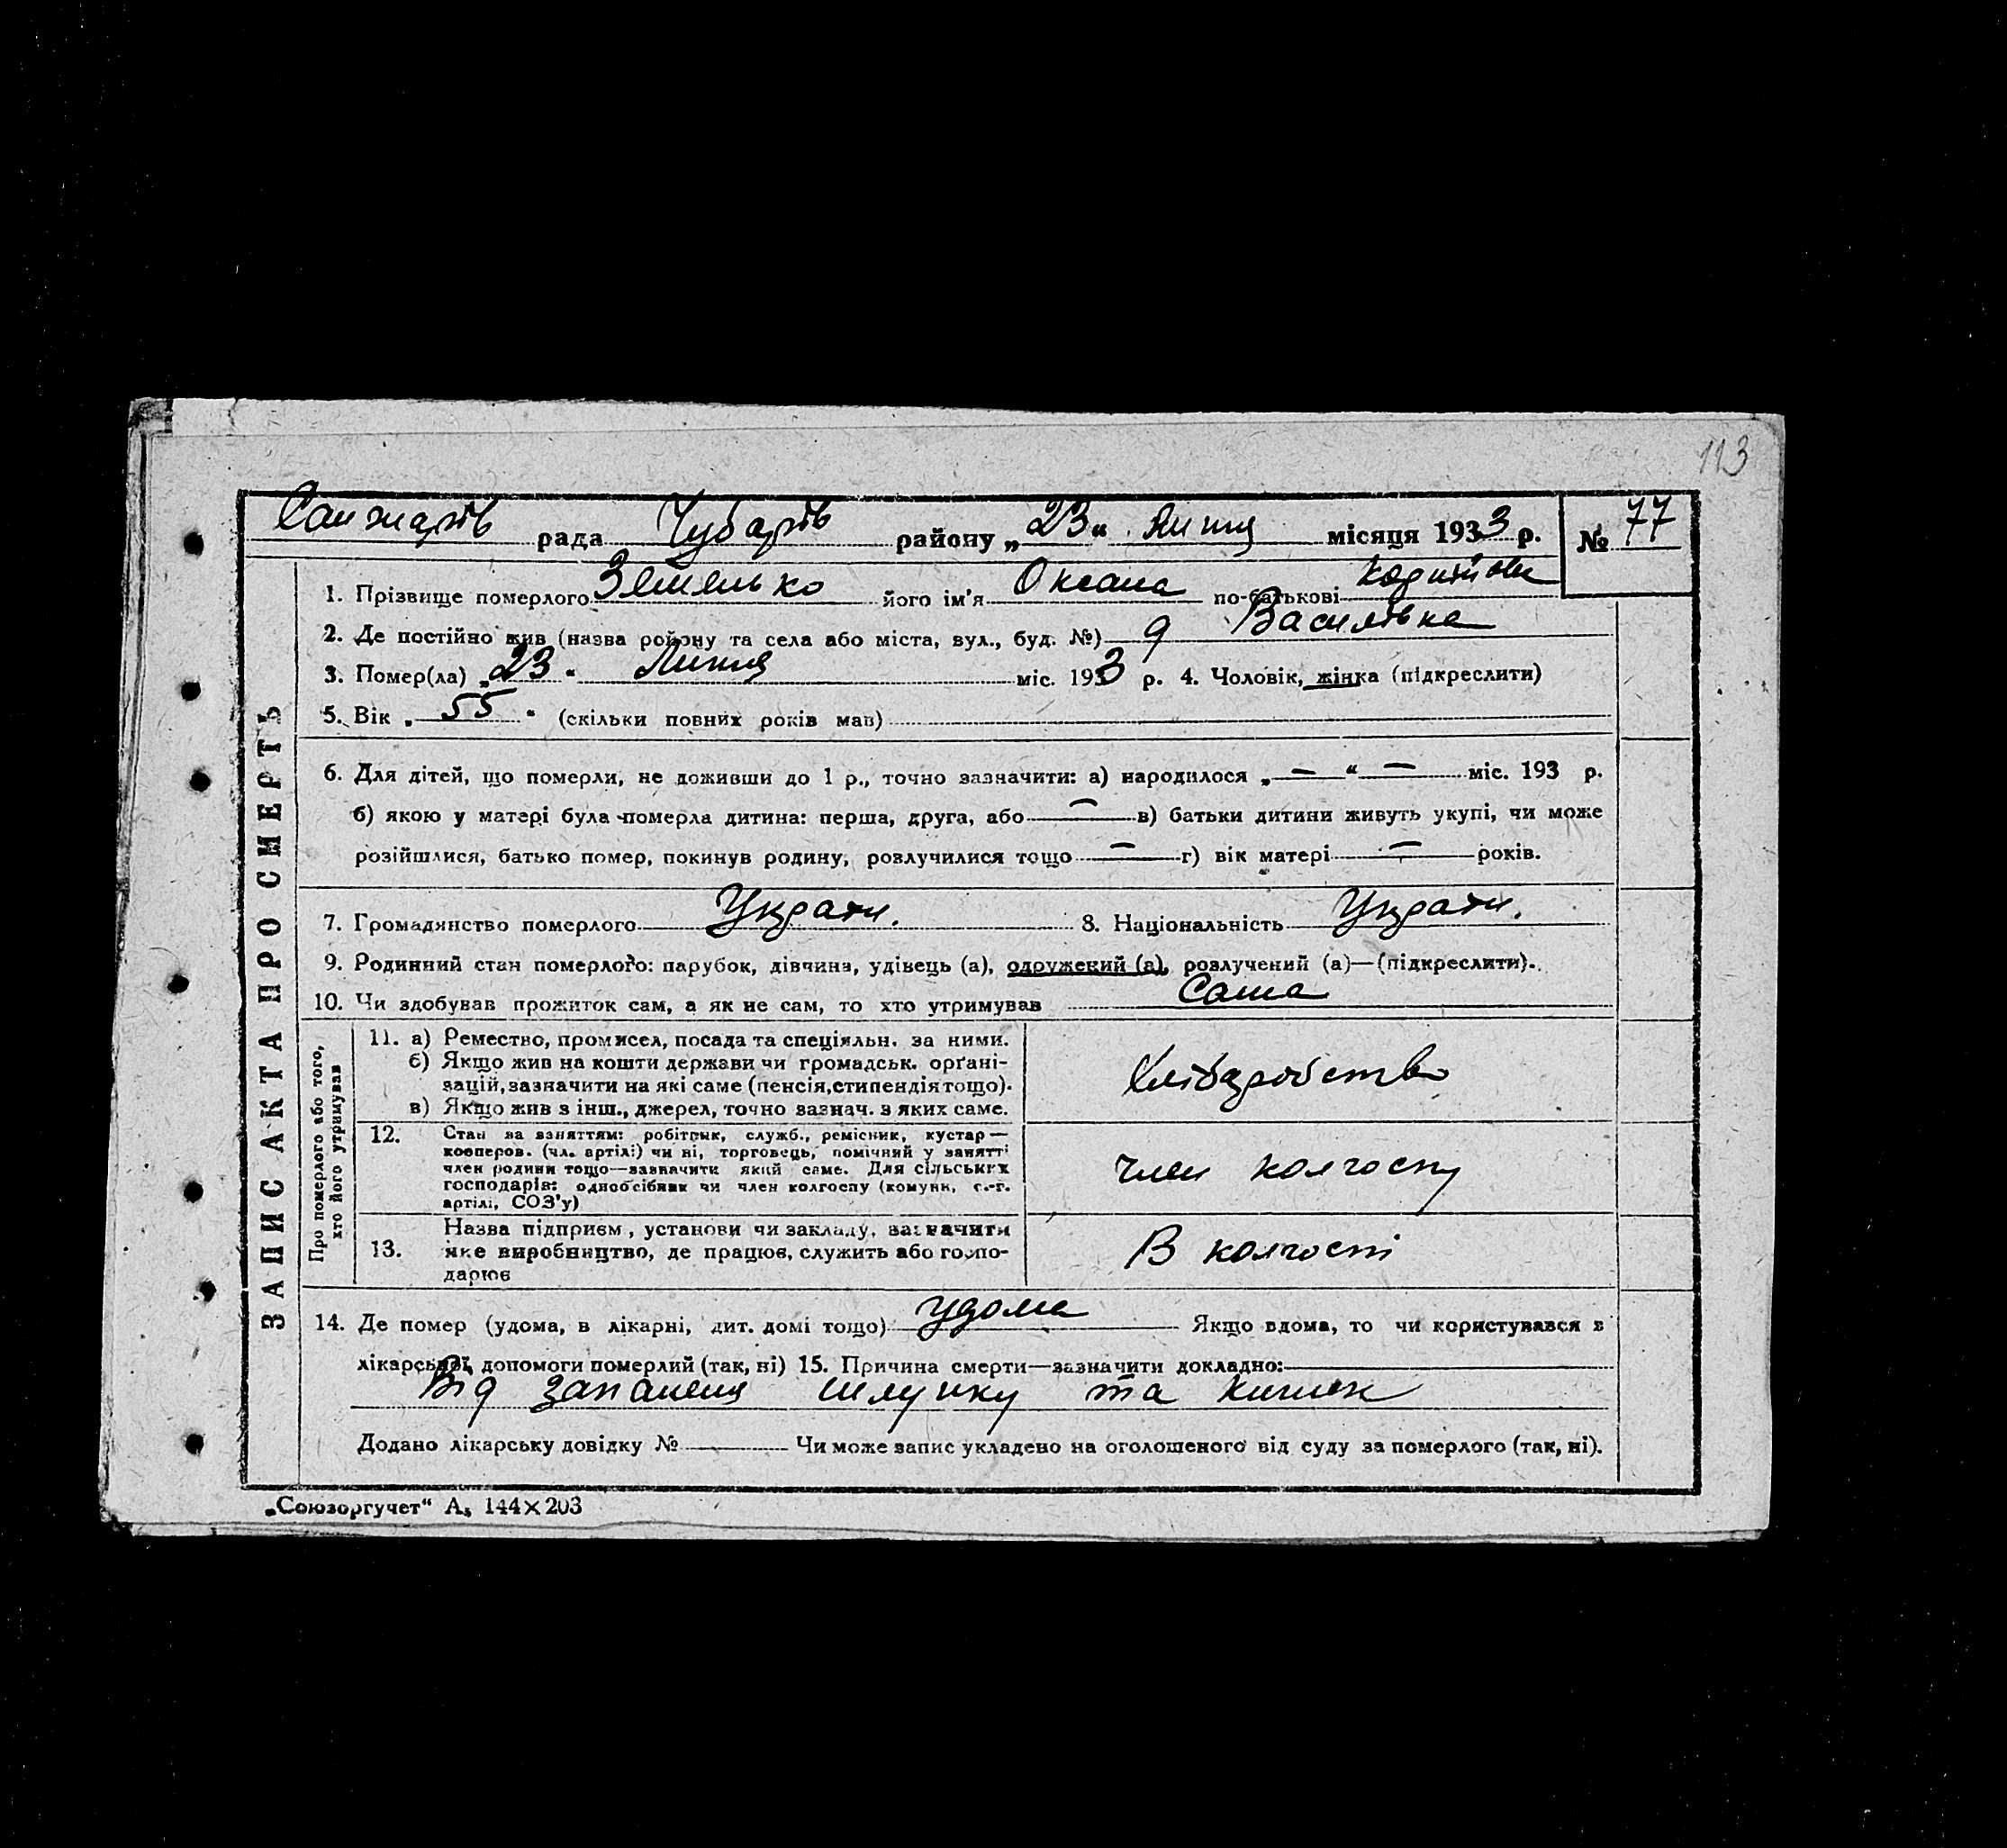 113
Санжарів рада Чубарів району „23“ Липня місяця 1933 р. № 77
ЗАПИС АКТА ПРО СМЕРТЬ
1. Прізвище померлого Земелько його ім'я Оксана по-батькові
2. Де постійно жив (назва ройону та села або міста, вул., буд. №) Василівка
3. Помер(ла) „23“ Липня міс. 1933 р. 4. Чоловік, жінка (підкреслити)
5. Вік „55“ (скільки повних років мав)
6. Для дітей, що померли, не доживши до 1 р., точно зазначити: а) народилося „—“ — міс. 193 р.
б) якою у матері була померла дитина: перша, друга, або — в) батьки дитини живуть укупі, чи може
розійшлися, батько помер, покинув родину, розлучилися тощо — г) вік матері — років.
7. Громадянство померлого Украін. 8. Національність Украін.
9. Родинний стан померлого: парубок, дівчина, удівець (а), одружений (а), розлучений (а)—(підкреслити).
10. Чи здобував прожиток сам, а як не сам, то хто утримував Сама
Про померлого або того,
хто його утримував
11. а) Ремество, промисел, посада та спеціяльн. за ними.
б) Якщо жив на кошти держави чи громадськ. орґані-
зацій, зазначити на які саме (пенсія, стипендія тощо).
в) Якщо жив з інш., джерел, точно зазнач. з яких саме.
Хліборобство
12. Стан за заняттям: робітник, служб., ремісник, кустар—
кооперов. (чл. артілі) чи ні, торговець, помічний у занятті
член родини тощо—зазначити який саме. Для сільських
господарів: одноосібник чи член колгоспу (комуни, с.-г.
артілі, СОЗ'у)
член колгоспу
13. Назва підприєм., установи чи закладу, зазначити
яке виробництво, де працює, служить або госпо-
дарює
В колгоспі
14. Де помер (удома, в лікарні, дит. домі тощо) удома Якщо вдома, то чи користувався з
лікарської допомоги померлий (так, ні) 15. Причина смерти—зазначити докладно:
Від запаленя шлунку та кишек
Додано лікарську довідку № — Чи може запис укладено на оголошеного від суду за померлого (так, ні).
„Союзоргучет“ А₅ 144×203